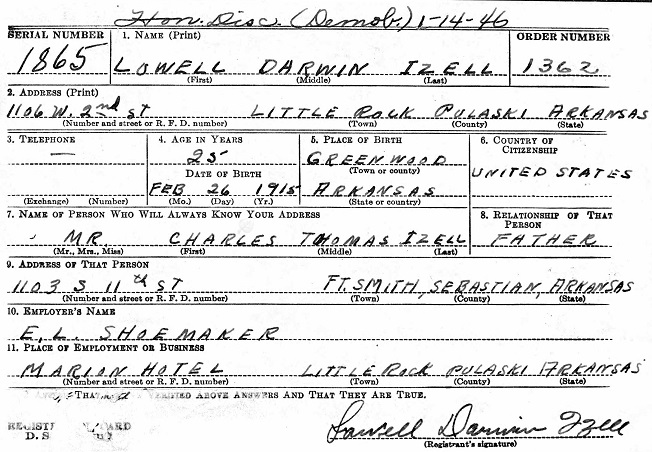 Hon. Disc. (Demob.) 1-14-46
SERIAL NUMBER 1. NAME (Print) ORDER NUMBER
1865 LOWELL DARWIN IZELL 1362
(First) (Middle) (Last)
2. ADDRESS (Print)
1106 W. 2nd ST LITTLE ROCK PULASKI ARKANSAS
(Number and street or R. F. D. number) (Town) (County) (State)
3. TELEPHONE 4. AGE IN YEARS 5. PLACE OF BIRTH 6. COUNTRY OF CITIZENSHIP
— 25 GREENWOOD
(Town or county)
DATE OF BIRTH UNITED STATES
FEB 26 1915 ARKANSAS
(Exchange) (Number) (Mo.) (Day) (Yr.) (State or country)
7. NAME OF PERSON WHO WILL ALWAYS KNOW YOUR ADDRESS 8. RELATIONSHIP OF THAT PERSON
MR. CHARLES THOMAS IZELL FATHER
(Mr., Mrs., Miss) (First) (Middle) (Last)
9. ADDRESS OF THAT PERSON
1103 S 11th ST FT. SMITH, SEBASTIAN, ARKANSAS
(Number and street or R. F. D. number) (Town) (County) (State)
10. EMPLOYER'S NAME
E. L. SHOEMAKER
11. PLACE OF EMPLOYMENT OR BUSINESS
MARION HOTEL LITTLE ROCK PULASKI ARKANSAS
(Number and street or R. F. D. number) (Town) (County) (State)
THAT VERIFIED ABOVE ANSWERS AND THAT THEY ARE TRUE.
D. S. Lowell Darwin Izell
(Registrant's signature)